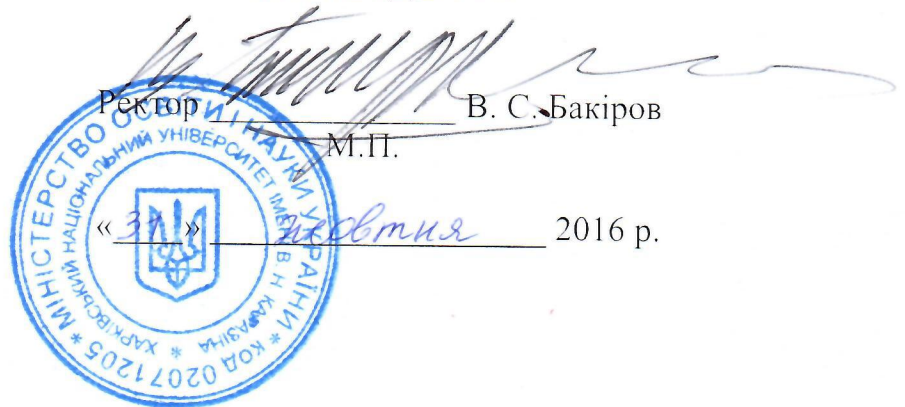 Ректор ________________ В. С. Бакіров
М.П.
«31» жовтня 2016 р.
* МІНІСТЕРСТВО ОСВІТИ І НАУКИ УКРАЇНИ * КОД 02071205
* ХАРКІВСЬКИЙ НАЦІОНАЛЬНИЙ УНІВЕРСИТЕТ ІМЕНІ В. Н. КАРАЗІНА